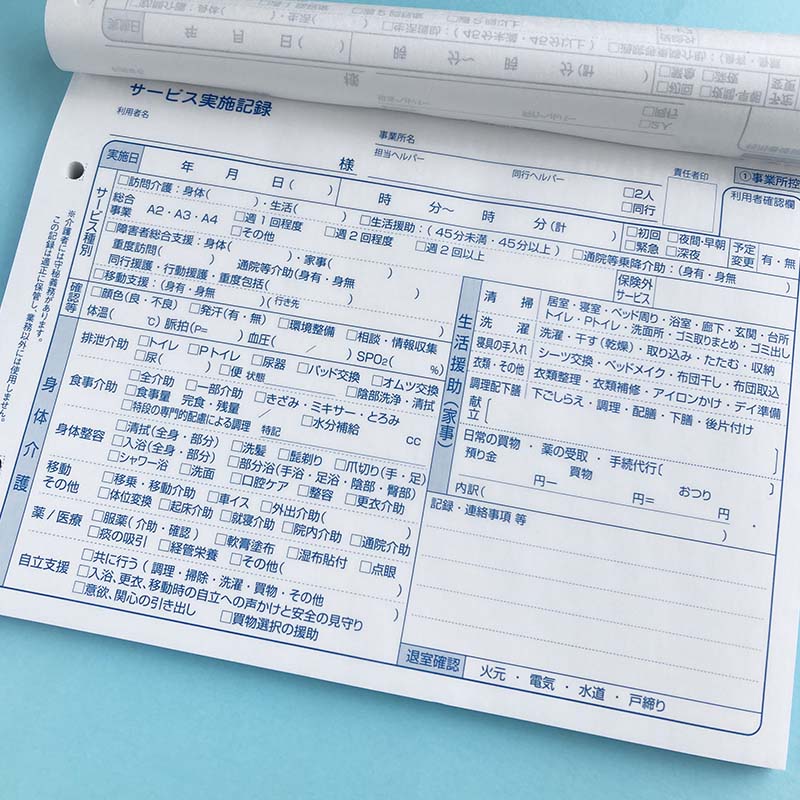 サービス実施記録
利用者名
様
事業所名
担当ヘルパー
同行ヘルパー
□2人
□同行
責任者印
①事業所控
利用者確認欄
実施日 年 月 日( ) 時 分〜 時 分(計 )
□初回 □夜間・早朝
□緊急 □深夜
予定変更 有・無
サービス種別
□訪問介護:身体( )・生活( ) □生活援助:(45分未満・45分以上) □通院等乗降介助:(身有・身無)
総合事業 A2・A3・A4 □週1回程度 □週2回程度 □週2回以上
□その他
□障害者総合支援:身体( )・家事( )
重度訪問( ) 通院等介助(身有・身無)
同行援護・行動援護・重度包括( )
□移動支援:(身有・身無 )(行き先 )
保険外サービス
確認等
□顔色(良・不良) □発汗(有・無) □環境整備 □相談・情報収集
体温( ℃) 脈拍(P= ) 血圧( / ) SPO2( %)
身体介護
排泄介助 □トイレ □Pトイレ □尿器 □パッド交換 □オムツ交換
□尿( ) □便 状態 □陰部洗浄・清拭
食事介助 □全介助 □一部介助 □きざみ・ミキサー・とろみ
□食事量 完食・残量 / □水分補給 cc
□特段の専門的配慮による調理 特記
身体整容 □清拭(全身・部分) □洗髪 □髭剃り □爪切り(手・足)
□入浴(全身・部分) □部分浴(手浴・足浴・陰部・臀部)
□シャワー浴 □洗面 □口腔ケア □整容 □更衣介助
移動 □移乗・移動介助 □車イス □外出介助( )
その他 □体位変換 □起床介助 □就寝介助 □院内介助 □通院介助
薬/医療 □服薬(介助・確認) □軟膏塗布 □湿布貼付 □点眼
□痰の吸引 □経管栄養 □その他( )
自立支援 □共に行う(調理・掃除・洗濯・買物・その他 )
□入浴、更衣、移動時の自立への声かけと安全の見守り
□意欲、関心の引き出し □買物選択の援助
生活援助(家事)
清掃 居室・寝室・ベッド周り・浴室・廊下・玄関・台所
トイレ・Pトイレ・洗面所・ゴミ取りまとめ・ゴミ出し
洗濯 洗濯・干す(乾燥)・取り込み・たたむ・収納
寝具の手入れ シーツ交換・ベッドメイク・布団干し・布団取込
衣類・その他 衣類整理・衣類補修・アイロンかけ・デイ準備
調理配下膳 下ごしらえ・調理・配膳・下膳・後片付け
献立
日常の買物・薬の受取・手続代行[ ]
預り金 買物 おつり
円− 円= 円
内訳( )
記録・連絡事項 等
退室確認 火元・電気・水道・戸締り
※介護者には守秘義務があります。
この記録は適正に保管し、業務以外には使用しません。